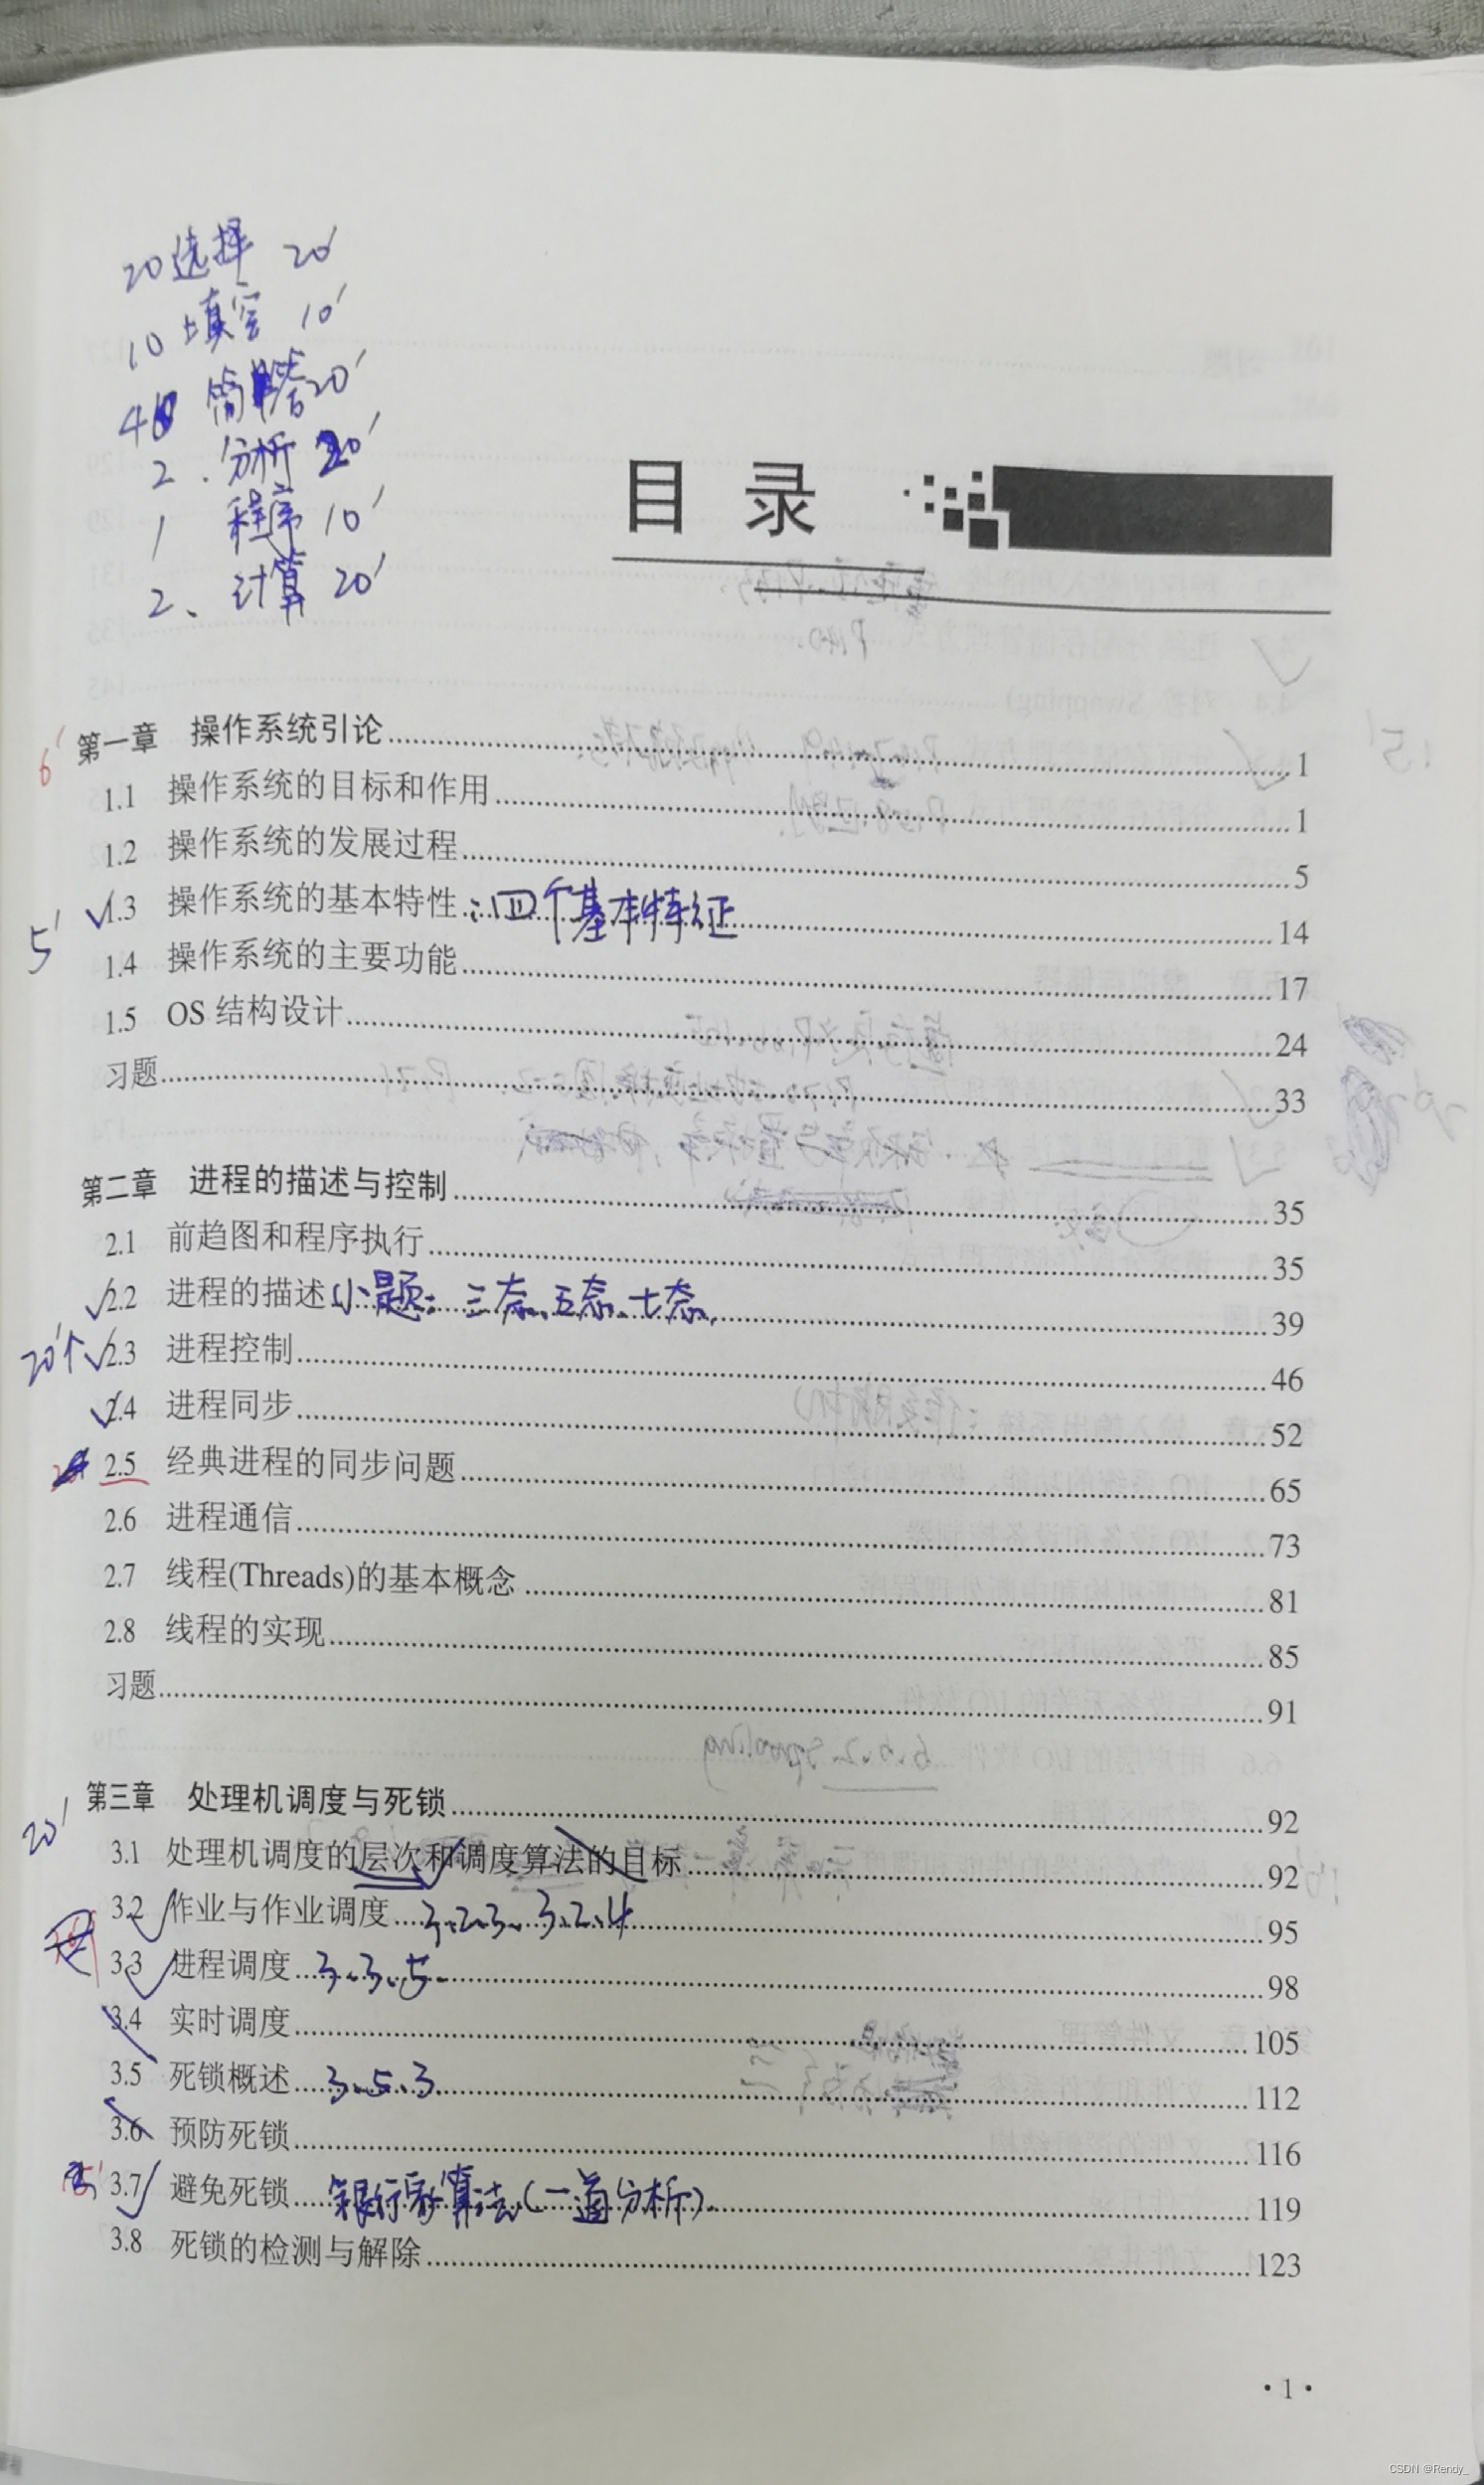 20 选择 20'
10 填空 10'
4 简答 20'
2. 分析 20'
1 程序 10'
2、计算 20'
目 录
6' 第一章 操作系统引论 1
1.1 操作系统的目标和作用 1
1.2 操作系统的发展过程 5
5' ✓1.3 操作系统的基本特性：四个基本特征 14
1.4 操作系统的主要功能 17
1.5 OS 结构设计 24
习题 33
第二章 进程的描述与控制 35
2.1 前趋图和程序执行 35
✓2.2 进程的描述 小题：三态、五态、七态, 39
20'个 ✓2.3 进程控制 46
✓2.4 进程同步 52
2.5 经典进程的同步问题 65
2.6 进程通信 73
2.7 线程(Threads)的基本概念 81
2.8 线程的实现 85
习题 91
20' 第三章 处理机调度与死锁 92
3.1 处理机调度的层次和调度算法的目标 92
3.2 ✓ 作业与作业调度 3.2.3、3.2.4 95
3.3 ✓ 进程调度 3.3.5 98
3.4 实时调度 105
3.5 死锁概述 3.5.3 112
3.6 预防死锁 116
3.7 ✓ 避免死锁 银行家算法(一道分析). 119
3.8 死锁的检测与解除 123
·1·
CSDN @Rendy_